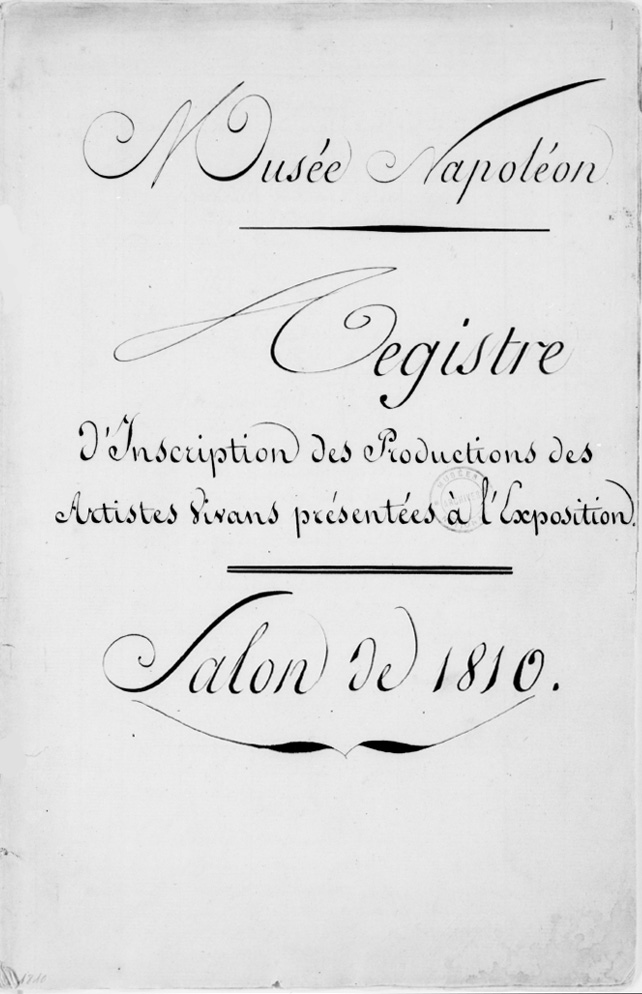 Musée Napoléon
Registre
d'Inscription des Productions des
Artistes Vivans présentées à l'Exposition.
Salon de 1810.
1810